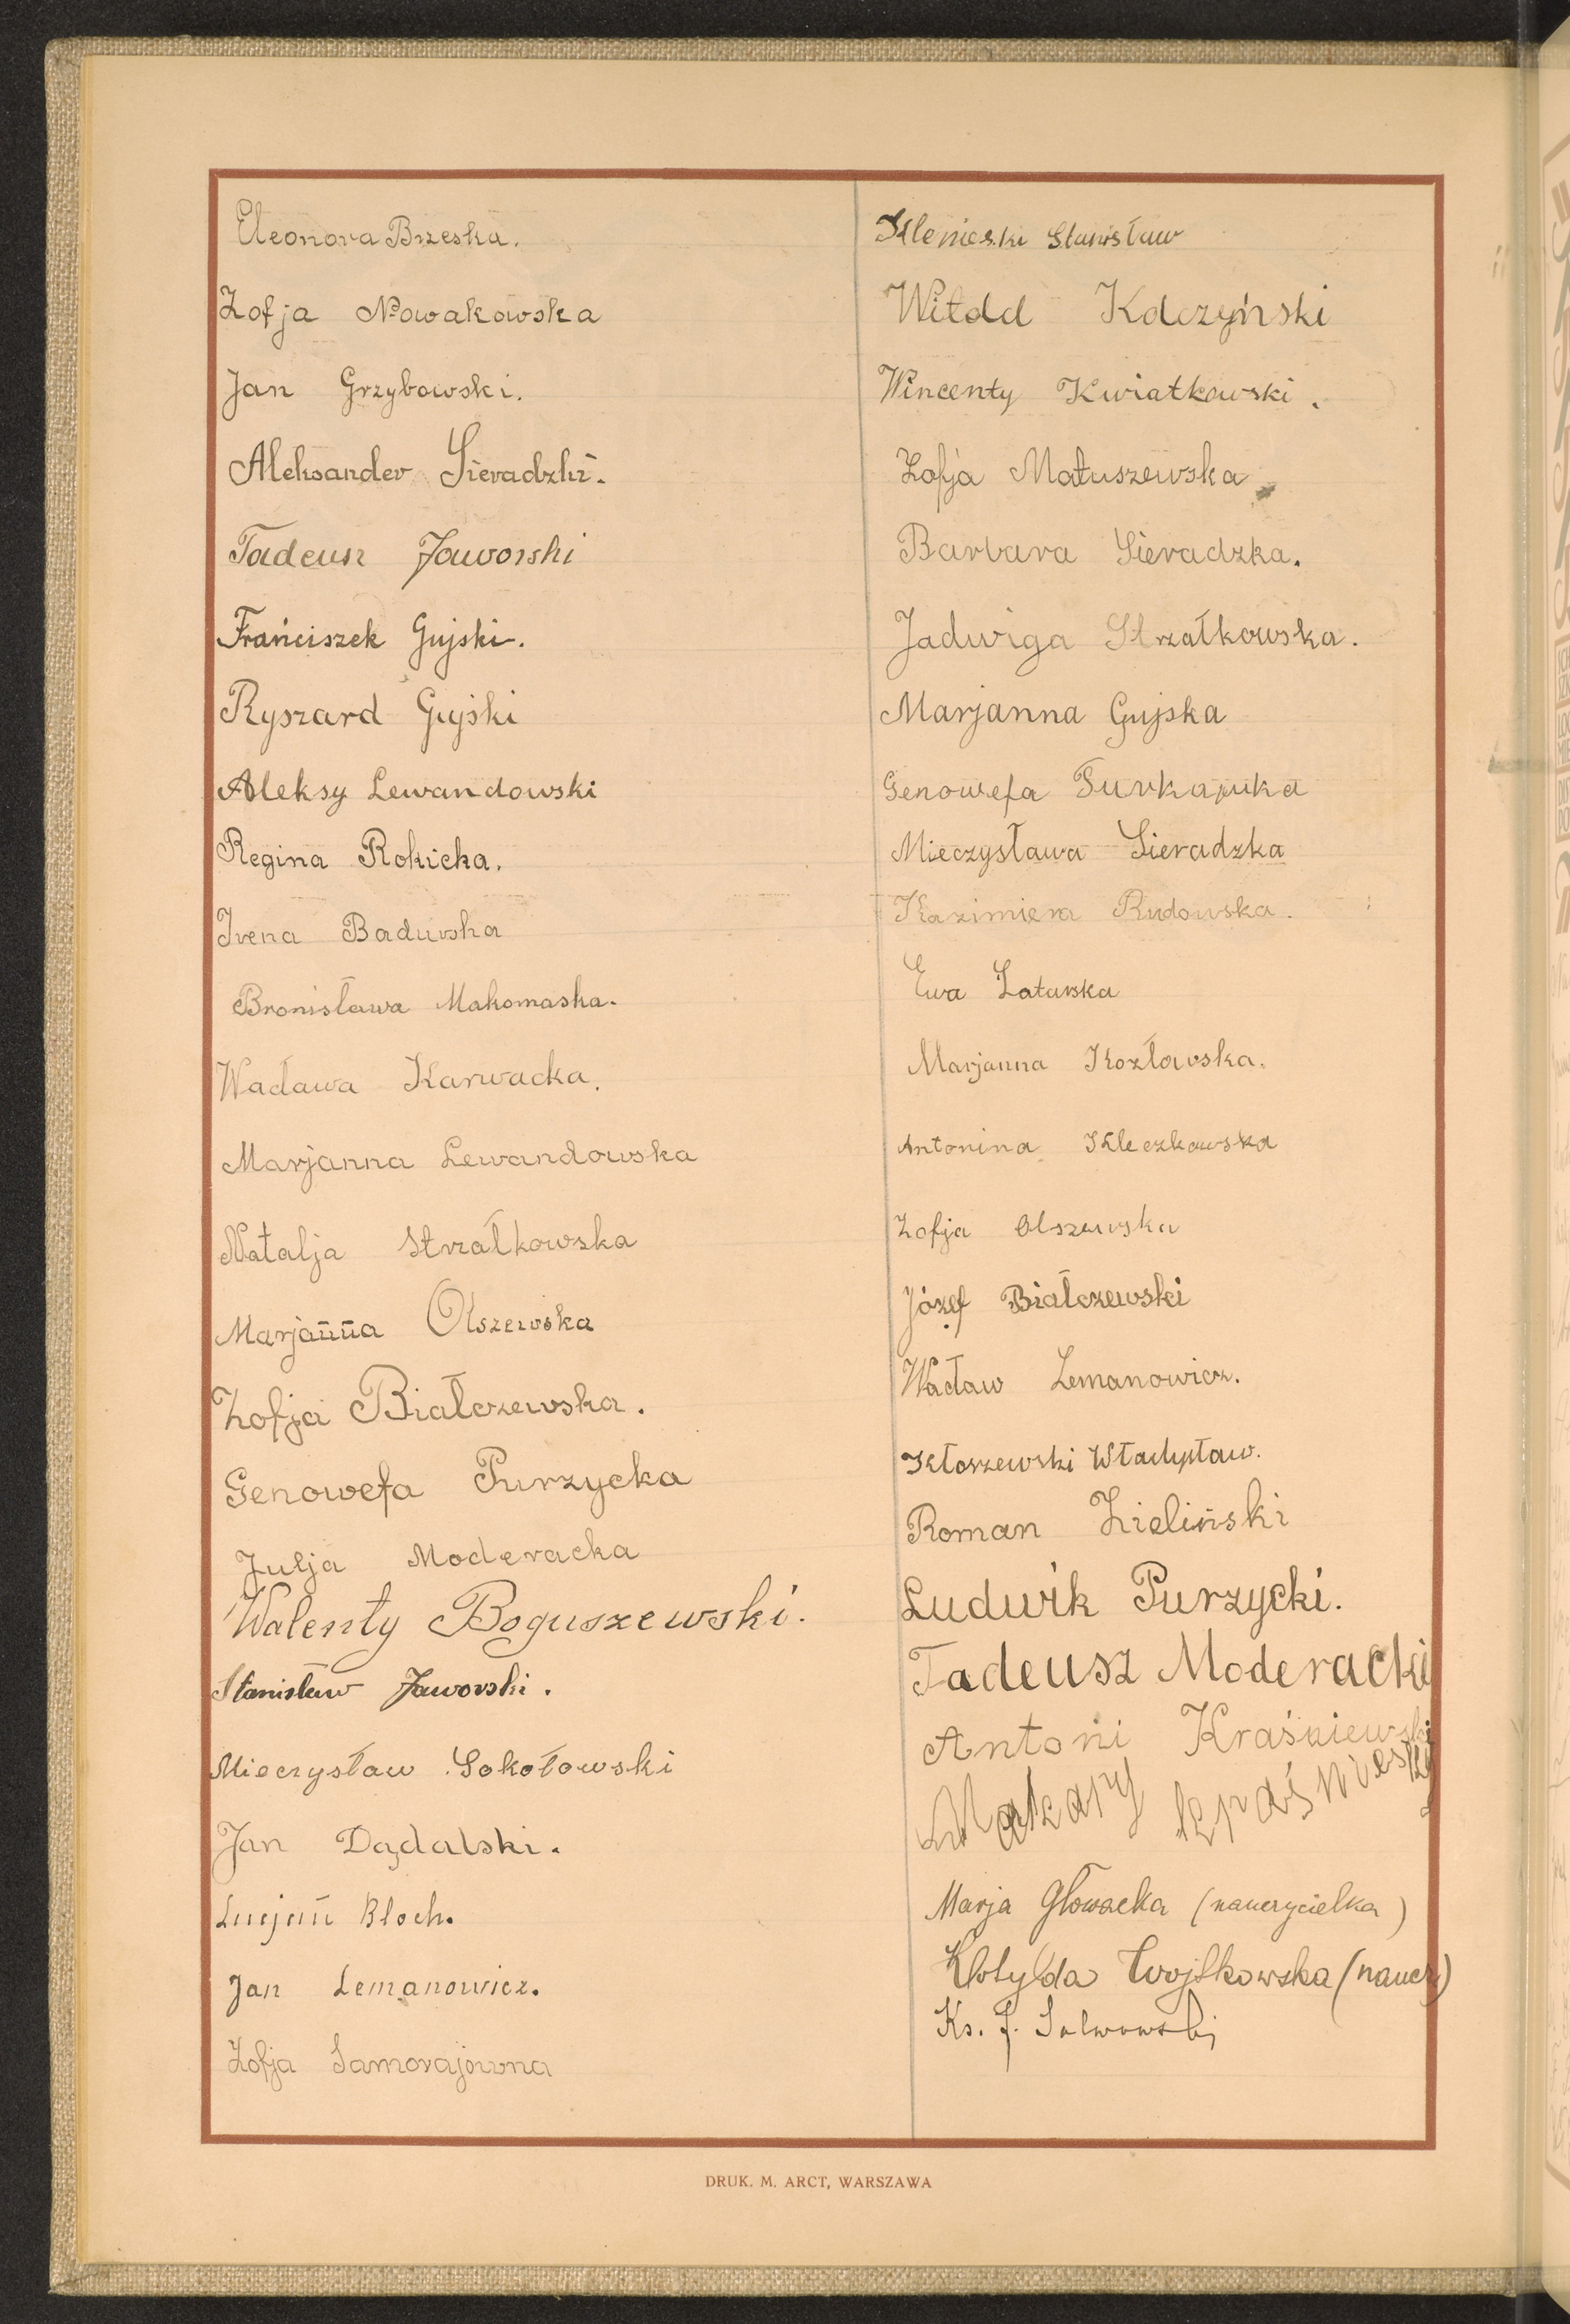 Eleonora Brzeska.
Zofja Nowakowska
Jan Grzybowski.
Aleksander Sieradzki.
Tadeusz Jaworski
Franciszek Gujski.
Ryszard Gujski
Aleksy Lewandowski
Regina Rokicka.
Irena Badurska
Bronisława Makomaska.
Wacława Karwacka.
Marjanna Lewandowska
Natalja Strzałkowska
Marjanna Olszewska
Zofja Białczewska.
Genowefa Purzycka
Julja Moderacka
Walenty Boguszewski.
Stanisław Jaworski.
Mieczysław Sokołowski
Jan Dądalski.
Lucjan Bloch.
Jan Lemanowicz.
Zofja Samorajówna
Klenieski Stanisław
Witold Kolczyński
Wincenty Kwiatkowski.
Zofja Matuszewska
Barbara Sieradzka.
Jadwiga Strzałkowska.
Marjanna Gujska
Genowefa
Mieczysława Sieradzka
Kazimiera Rudowska.
Ewa Latarska
Marjanna Kozłowska.
Antonina Kleczkowska
Zofja Olszewska
Józef Białczewski
Wacław Lemanowicz.
Kłoszewski Władysław.
Roman Zieliński
Ludwik Purzycki.
Tadeusz Moderacki
Antoni Kraśniewski
Makary
Marja Głowacka (nauczycielka)
Klotylda Wojtkowska (naucz)
Ks. J. Salwowski
DRUK. M. ARCT, WARSZAWA